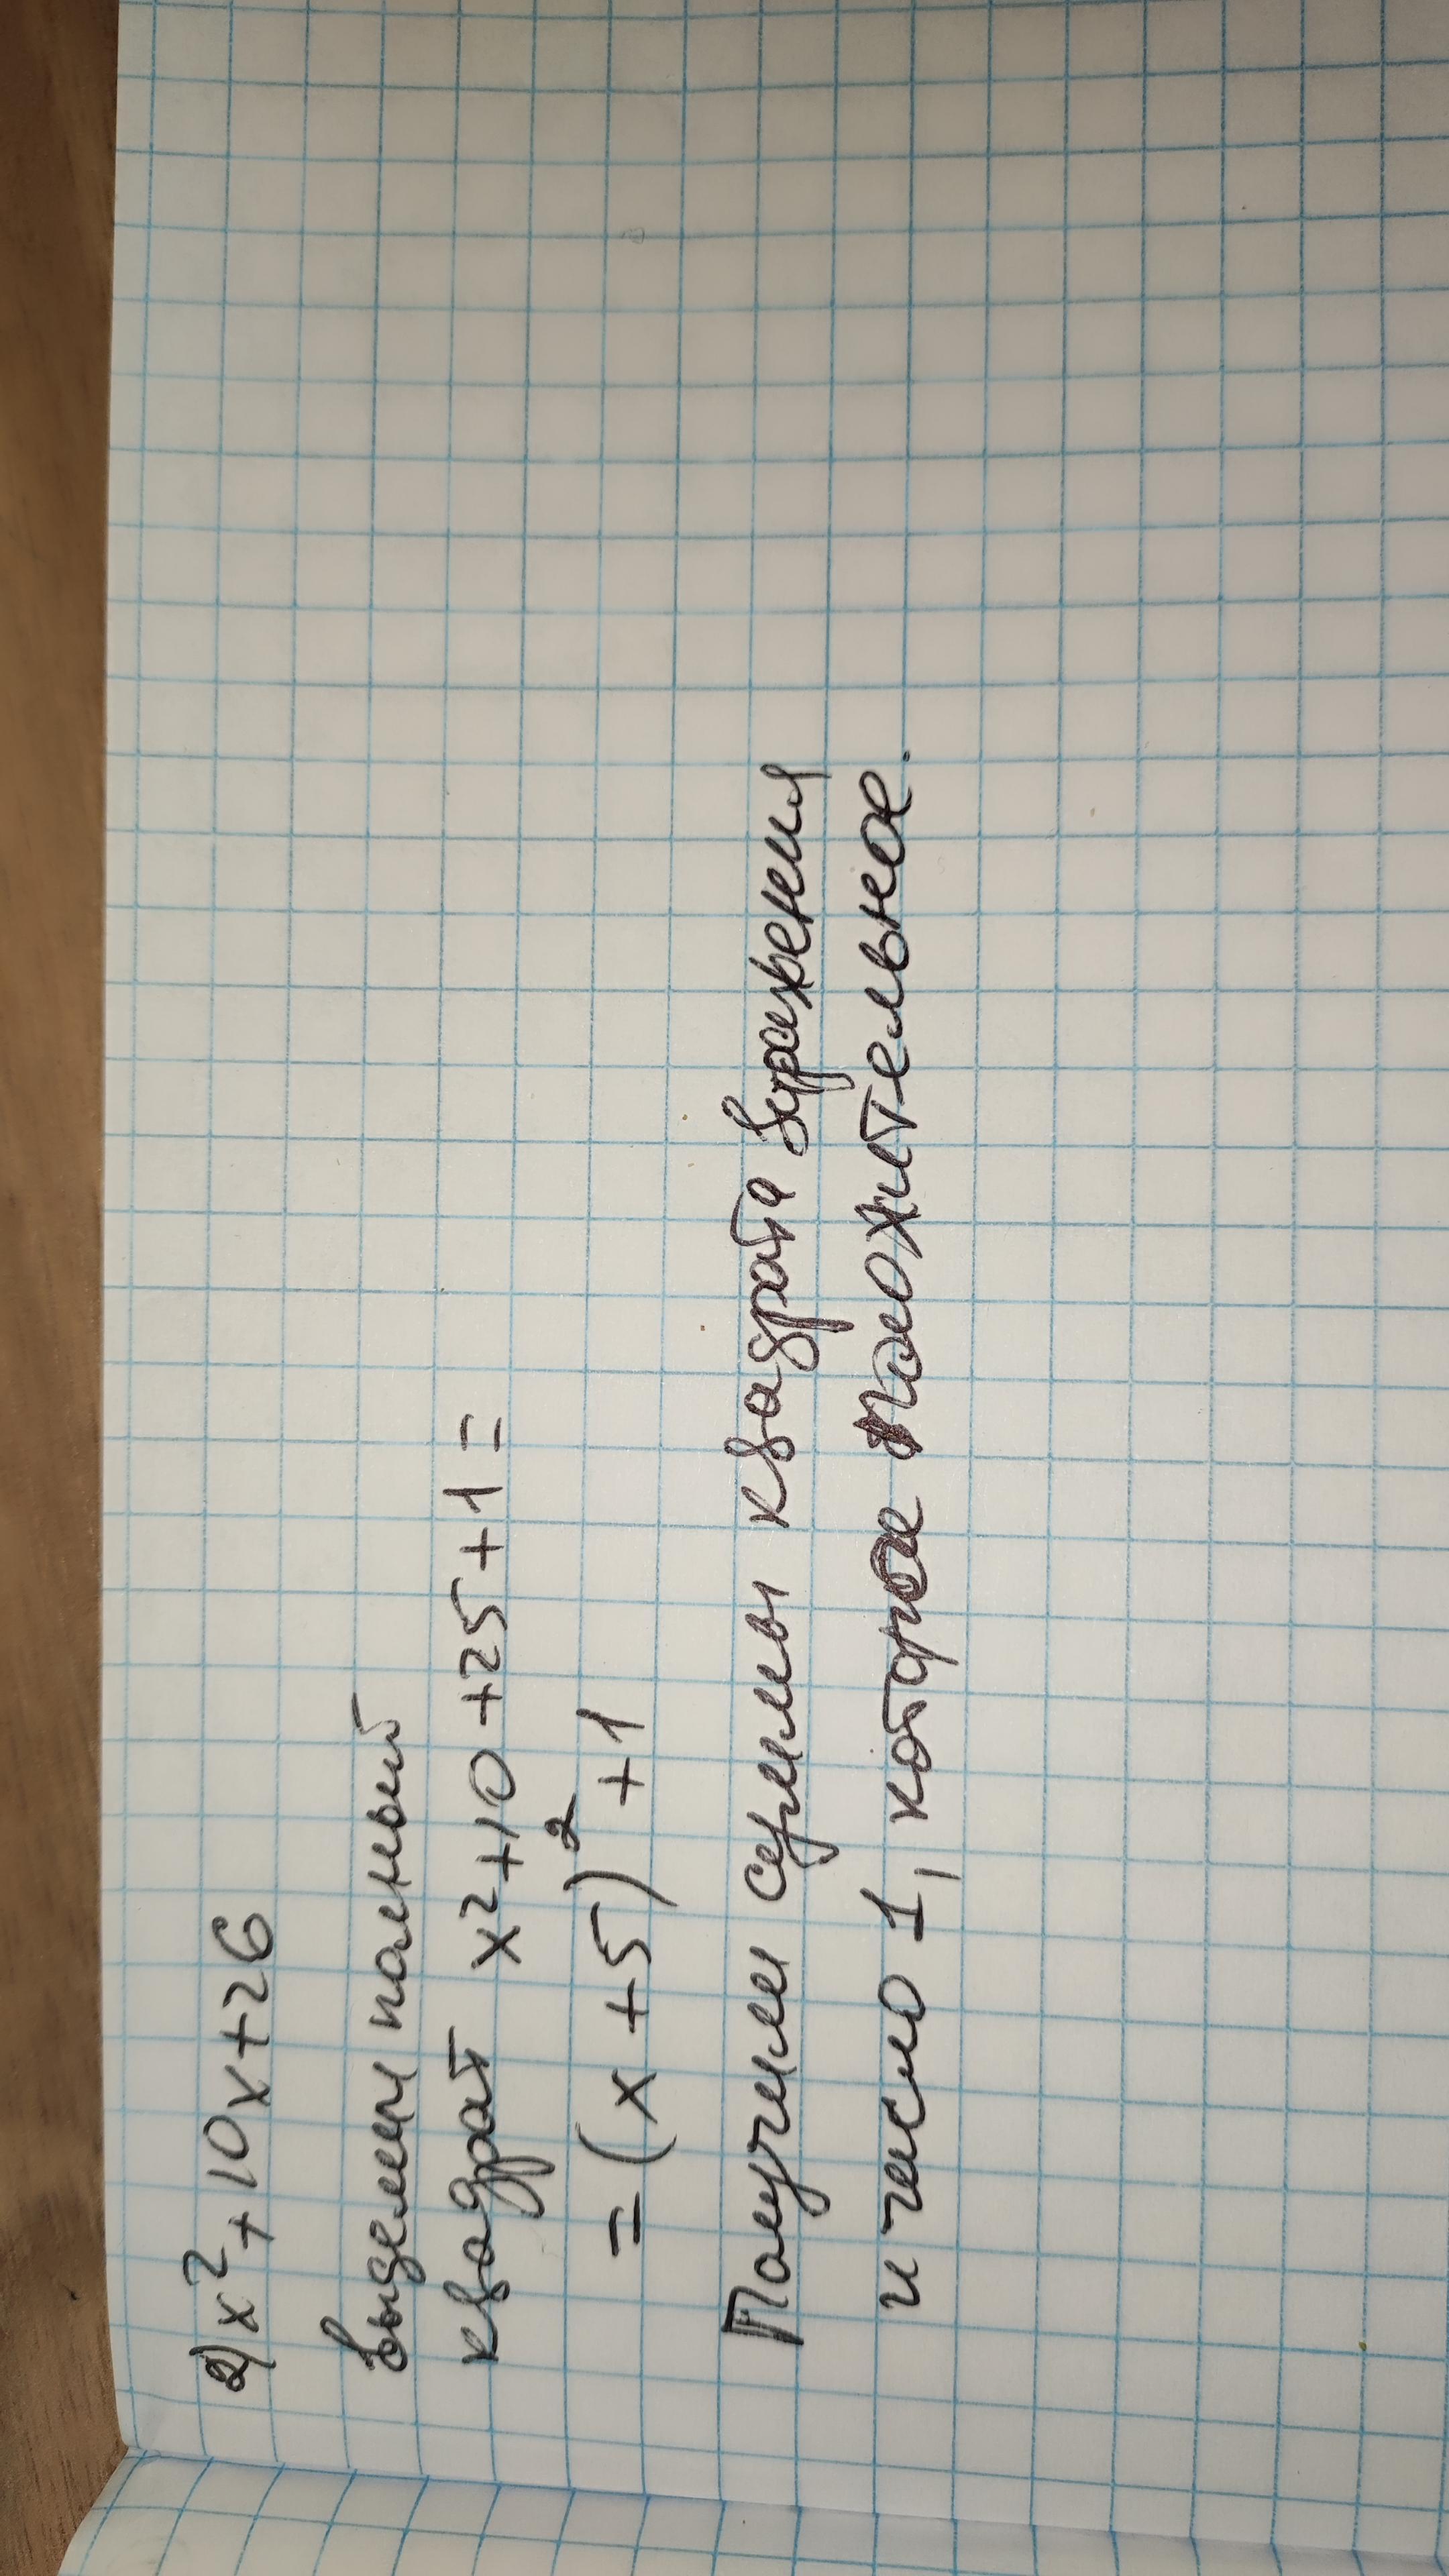 2) x²+10x+26
Выделим полный
квадрат x²+10+25+1=
=(x+5)²+1
Получили суммы квадрата выражения
и число 1, которое положительное.